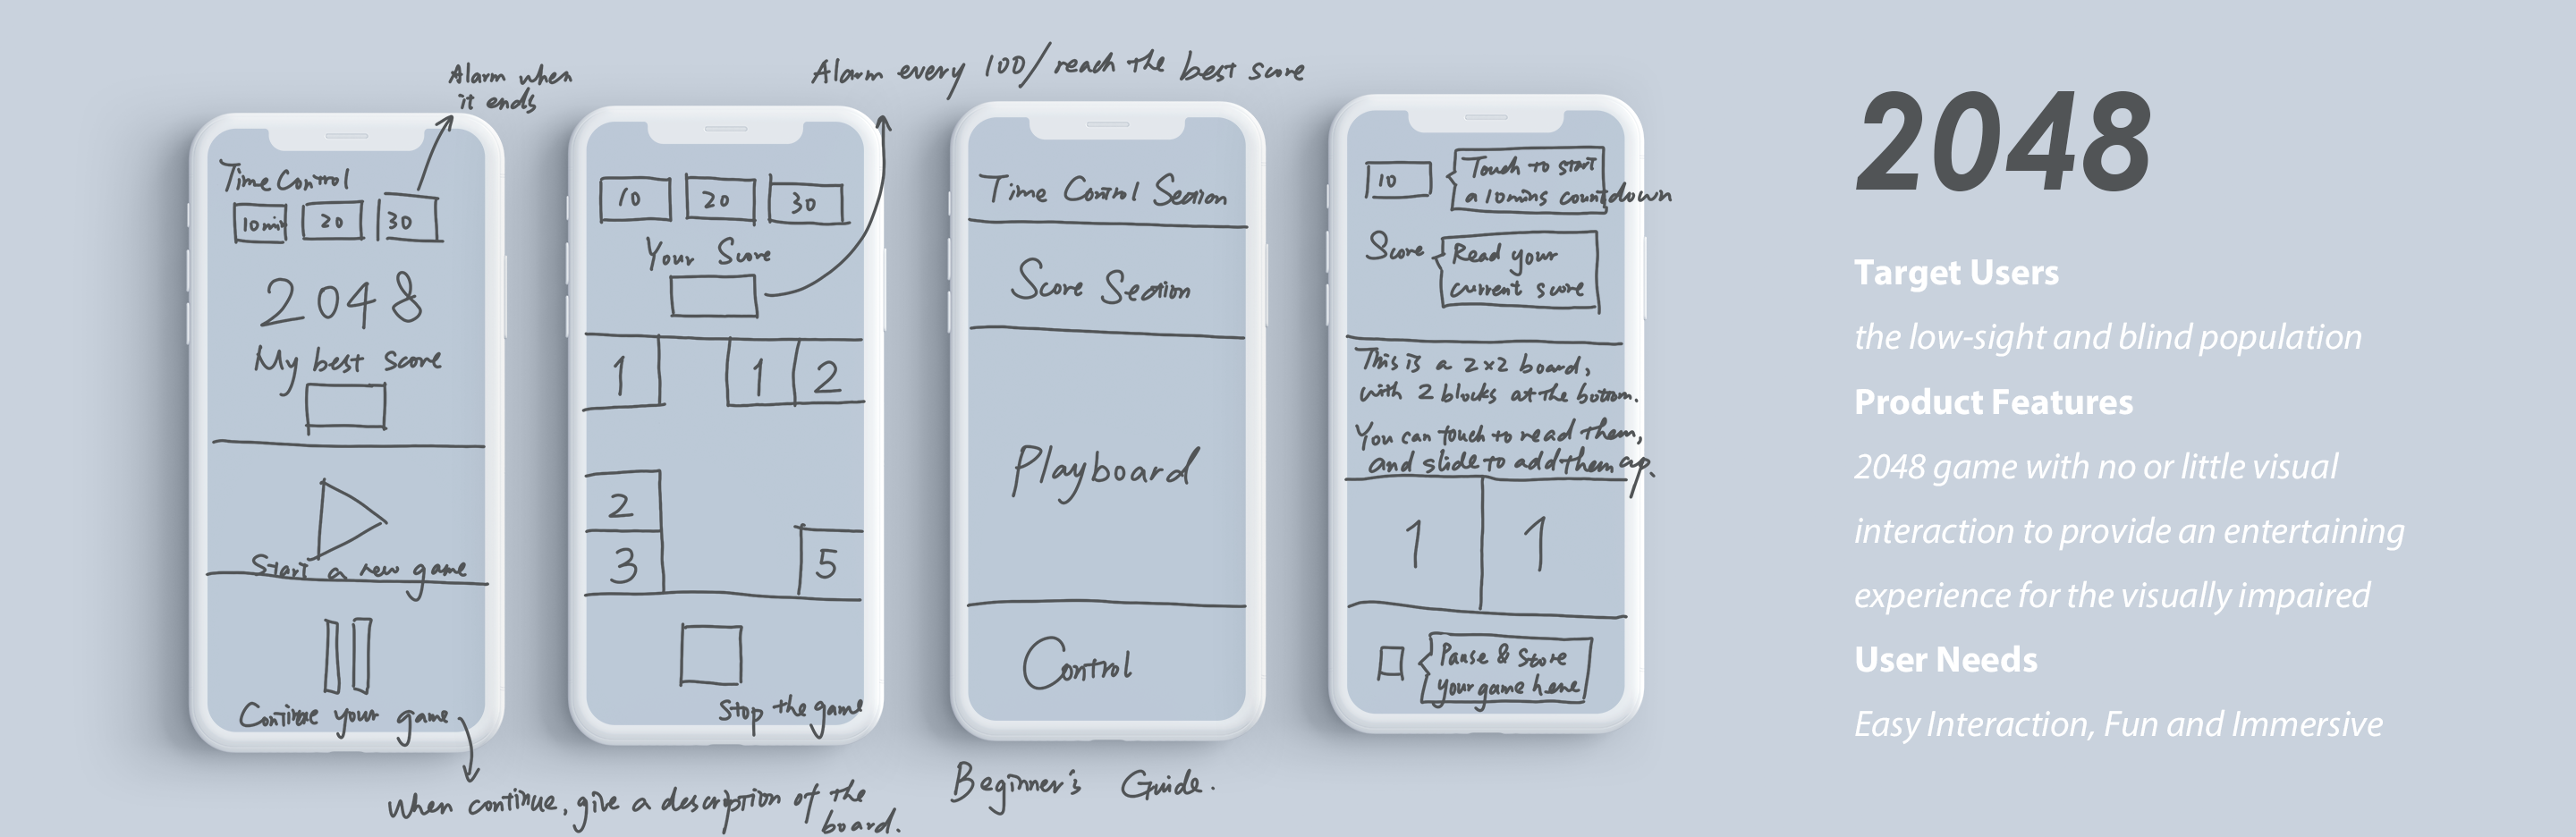 Alarm when
it ends
Time Control
10min 20 30
2048
My best score
Start a new game
Continue your game
When continue, give a description of the
board.
Alarm every 100/reach the best score
10 20 30
Your Score
1 1 2
2
3 5
Stop the game
Time Control Section
Score Section
Playboard
Control
Beginner's Guide.
10
Touch to start
a 10mins countdown
Score
Read your
current score
This is a 2x2 board,
with 2 blocks at the bottom.
You can touch to read them,
and slide to add them up.
1 1
Pause & Store
your game here
2048
Target Users
the low-sight and blind population
Product Features
2048 game with no or little visual
interaction to provide an entertaining
experience for the visually impaired
User Needs
Easy Interaction, Fun and Immersive